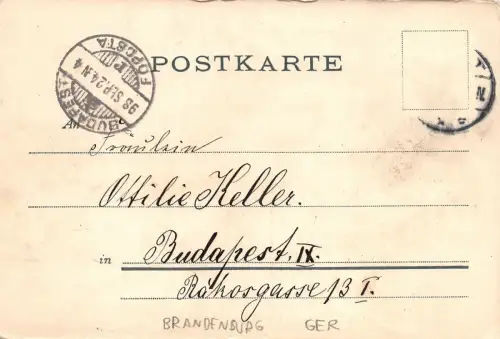 POSTKARTE
BUDAPEST
98 SEP. 24. N 4
FŐPOSTA
An
Fräulein
Ottilie Keller.
in Budapest. IX.
Rákosgasse 13 I.
BRANDENBURG GER